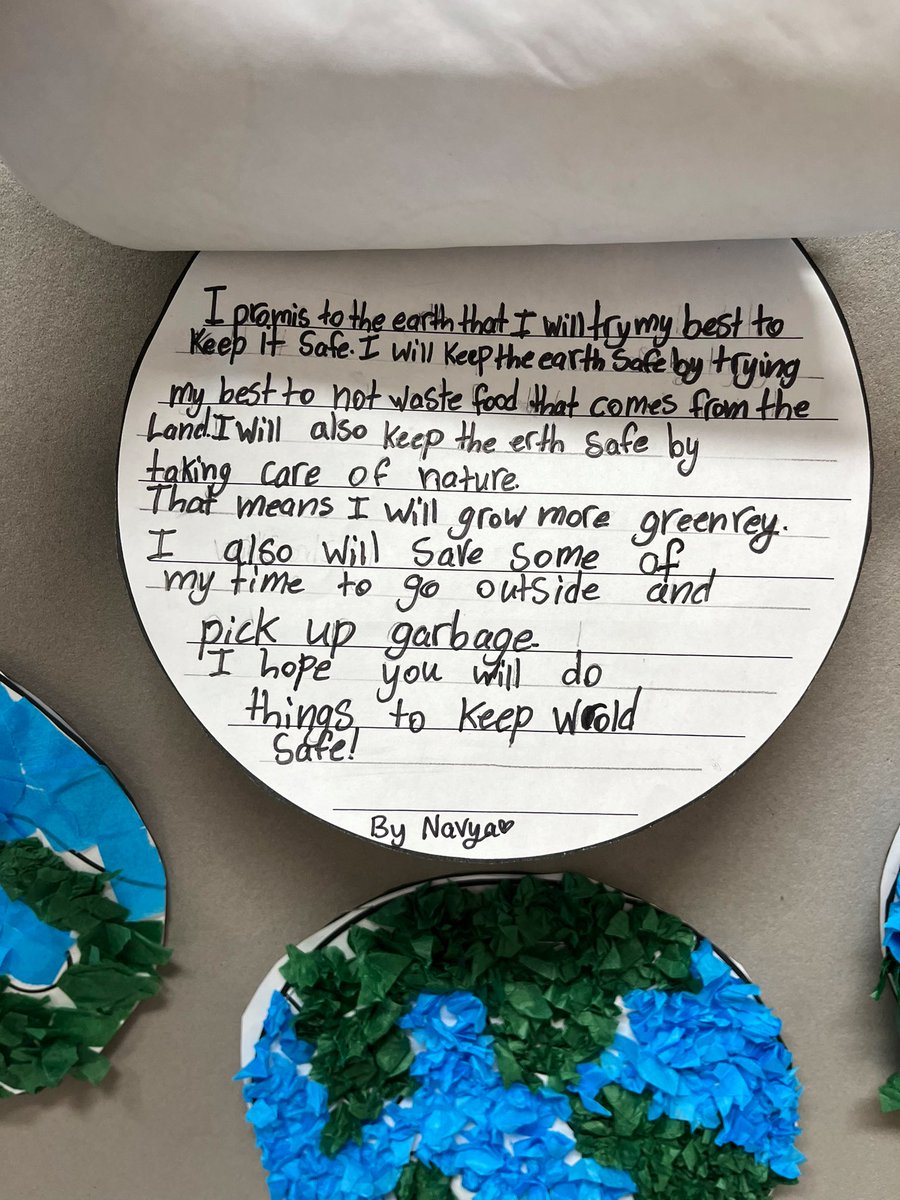 I promis to the earth that I will try my best to
Keep It Safe. I will Keep the earth Safe by trying
my best to not waste food that comes from the
Land. I will also keep the erth safe by
taking care of nature.
That means I will grow more greenrey.
I also will save some of
my time to go outside and
pick up garbage.
I hope you will do
things to keep wrold
Safe!
By Navya♥